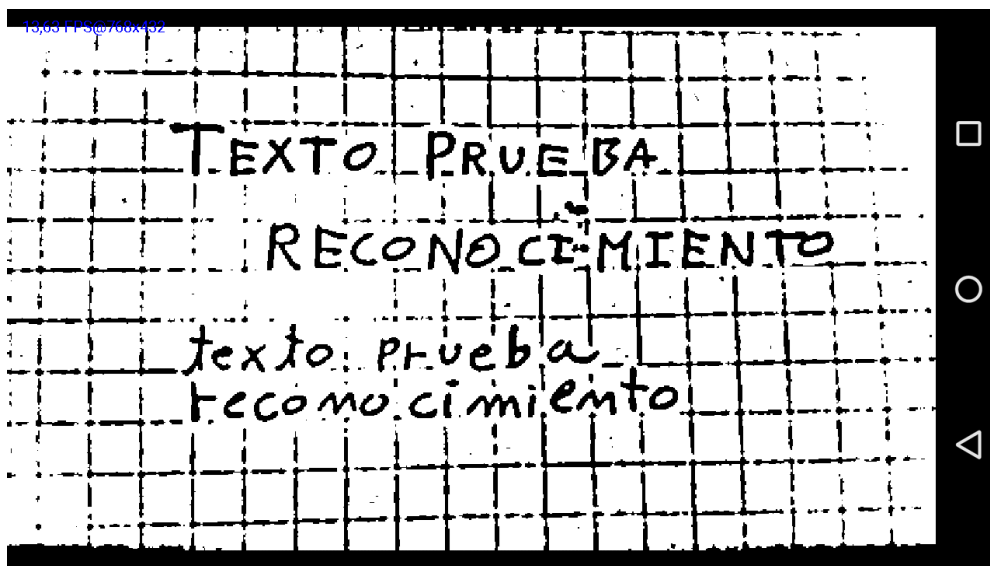 13,63 FPS@768x432
TEXTO PRUEBA
RECONOCIMIENTO
texto prueba
reconocimiento